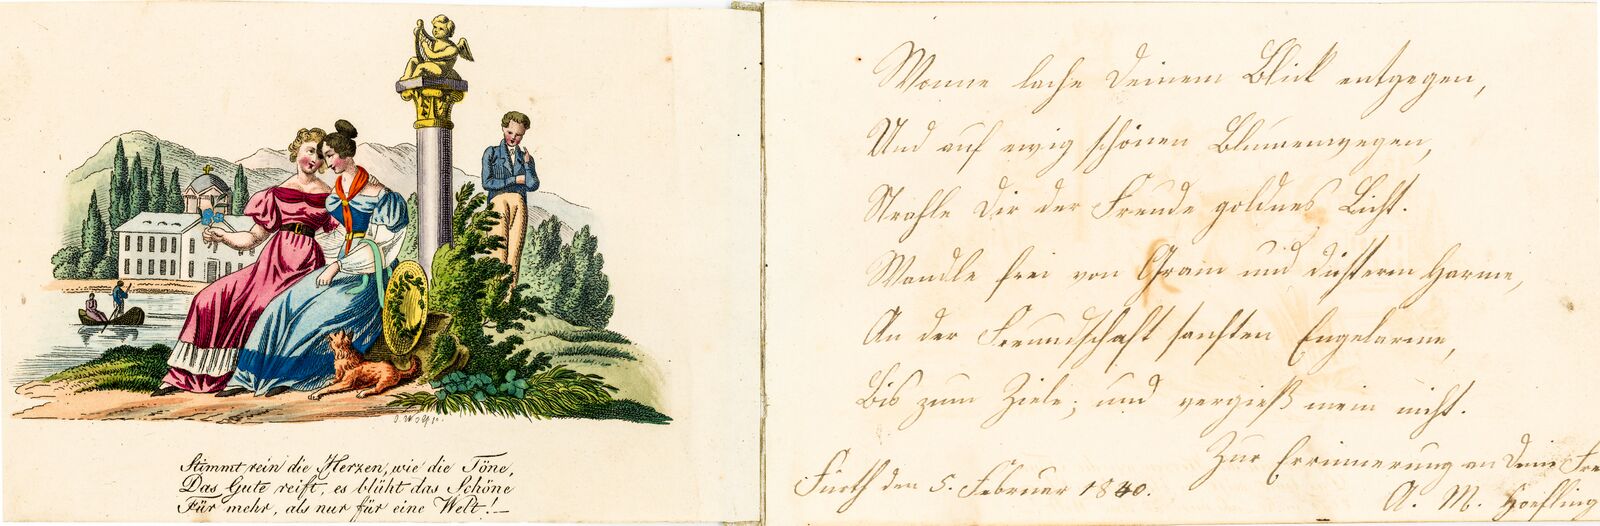 Stimmt rein die Herzen, wie die Töne,
Das Gute reift, es blüht das Schöne
Für mehr, als nur für eine Welt!_
Wonne lache Deinem Blick entgegen,
Und auf ewig schönen Blumenwegen,
Strahle Dir der Freude goldnes Licht.
Wandle frei von Gram und düsterm Harme,
An der Freundschaft sanften Engelarme,
Bis zum Ziele; und vergieß mein nicht.
Zur Errinnerung an Deine
Fürth den 5. Februar 1840.
A. M. Hoefling